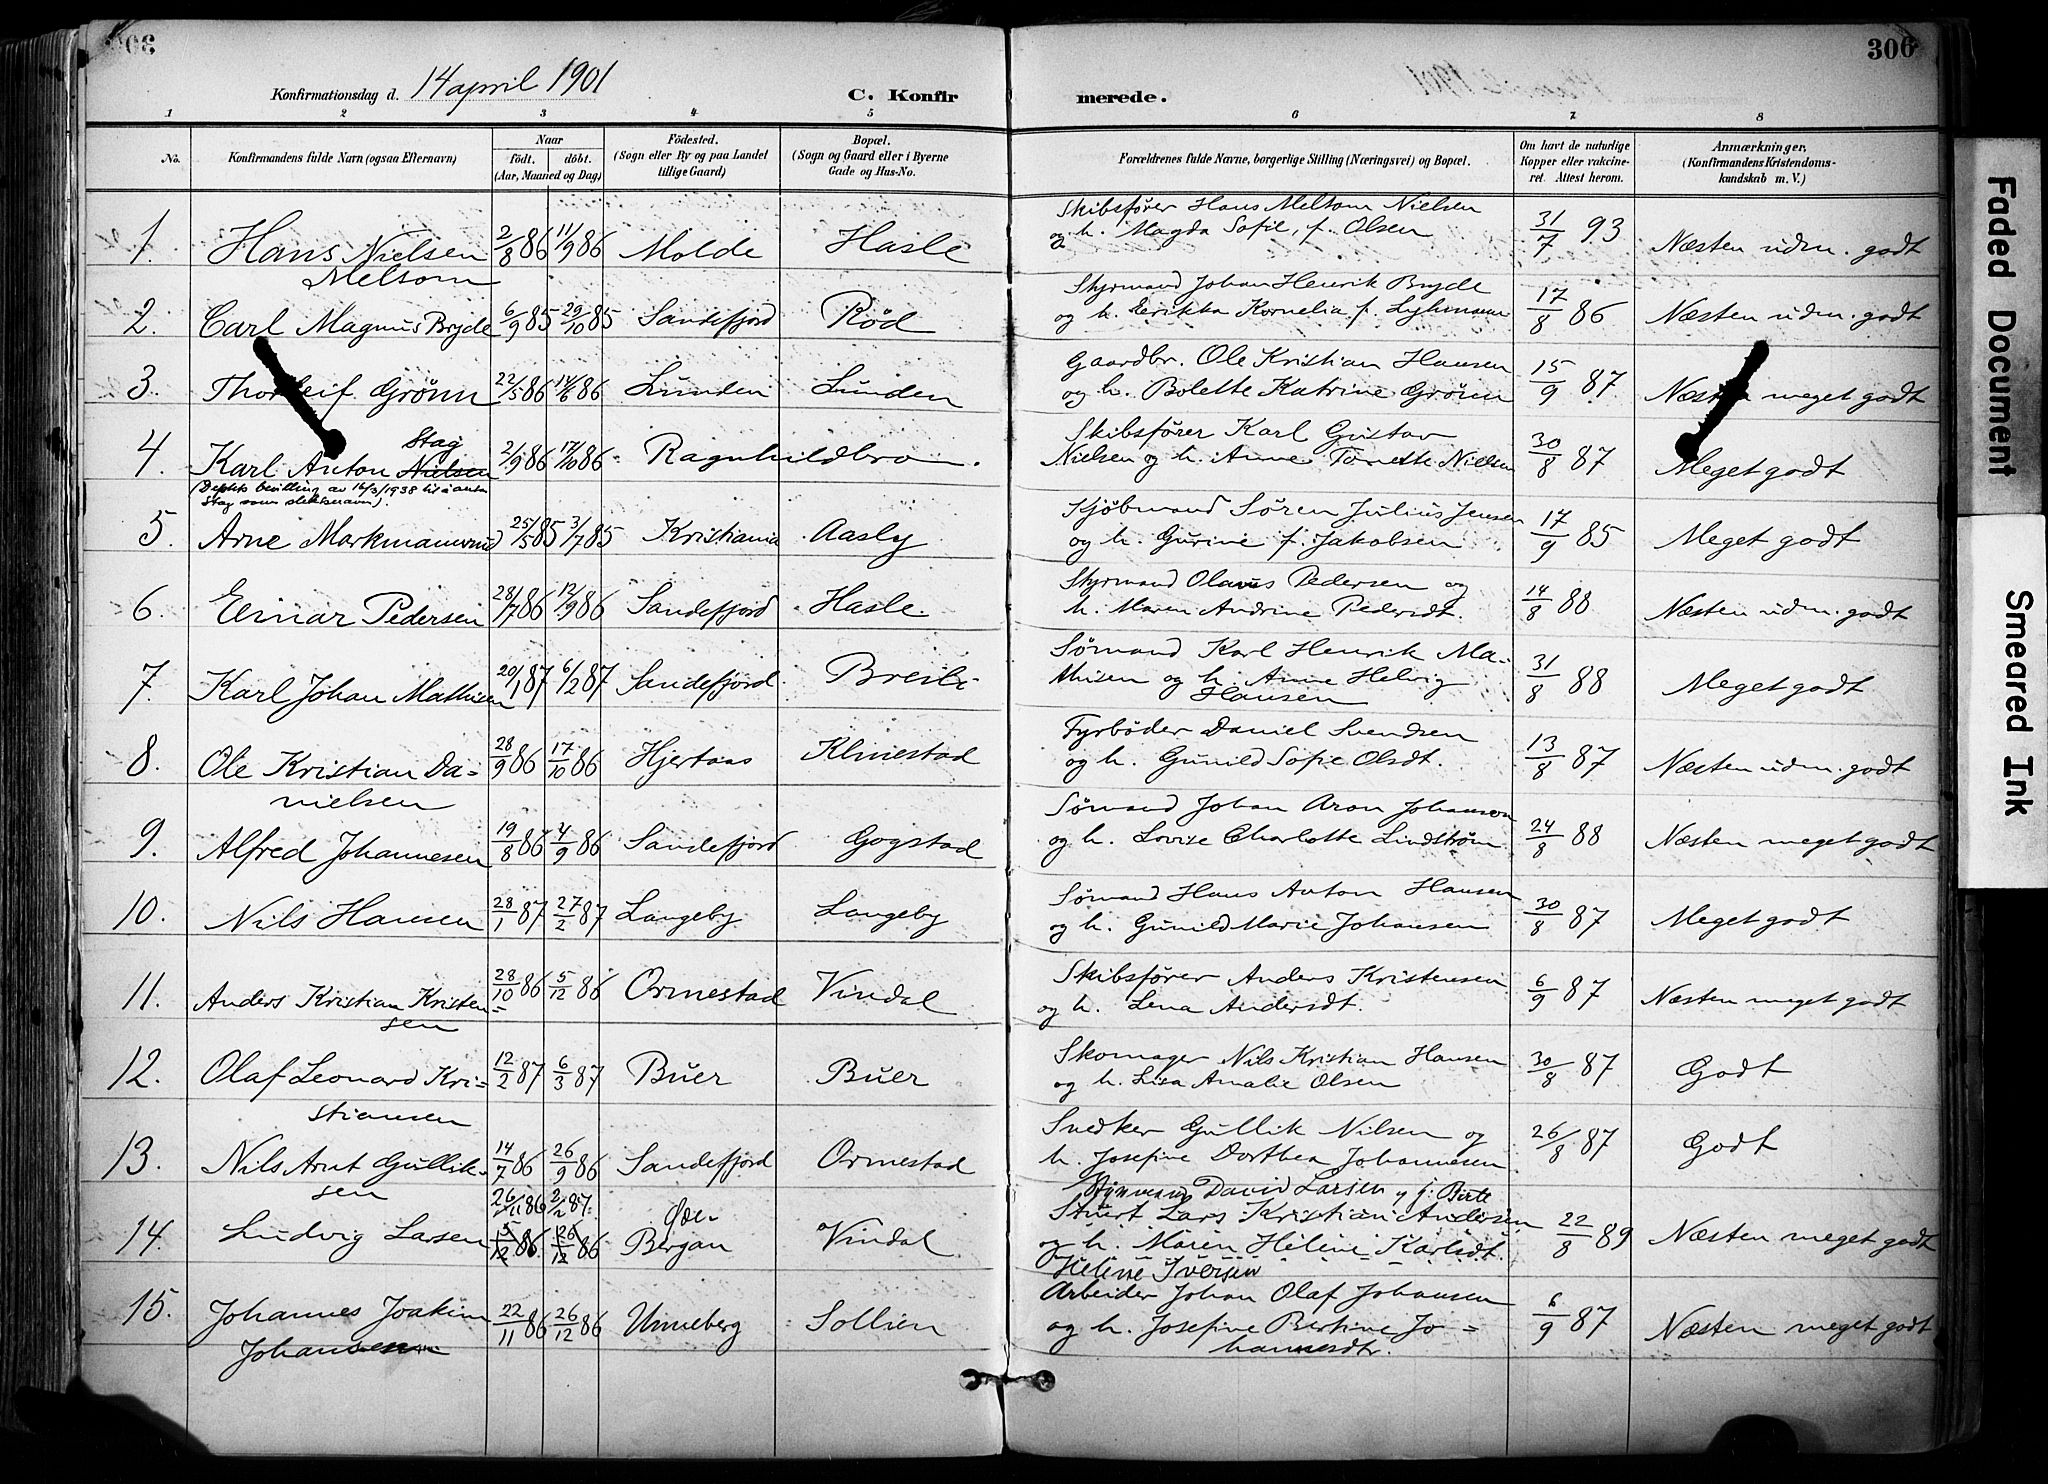 306
Konfirmationsdag d. 14 april 1901
C. Konfirmerede.
1 2 3 4 5 6 7 8
No. Konfirmandens fulde Navn (ogsaa Efternavn) Naar født. døbt. (Aar, Maaned og Dag) Fødested. (Sogn eller By og paa Landet tillige Gaard) Bopæl. (Sogn og Gaard eller i Byerne Gade og Hus-No. Forældrenes fulde Navne, borgerlige Stilling (Næringsvei) og Bopæl. Om havt de naturlige Kopper eller vakcineret Attest herom. Anmærkninger, (Konfirmandens Kristendomskundskab m. V.)
1. Hans Nielsen Melsom 2/8 86 11/9 86 Molde Hasle Skibsfører Hans Meltom Nielsen og h. Magda Sofie, f. Olsen 31/7 93 Næsten udm. godt
2. Carl Magnus Bryde 6/9 85 29/10 85 Sandefjord Rød Styrmand Johan Henrik Bryde og h. Erikka Kornelia f. 17/8 86 Næsten udm. godt
3. Thorleif Grønn 22/5 86 14/6 86 Lunden Lunden Gaardbr. Ole Kristian Hansen og h. Bolette Katrine Grønn 15/9 87. Næsten meget godt
4. Karl Anton Nielsen Stag 2/9 86 17/10 86 Ragnhildbro. Skibsfører Karl Gustav Nielsen og h. Anne Tonette Nielsen 30/8 87 Meget godt
(Depts bevilling av 16/3/1938 til å anta
Stag som slektsnavn).
5. Arne Markmanrud 25/5 85 3/7 85 Kristiania Aasly Kjøbmand Søren Julius Jensen og h. Gurine f. Jakobsen 17/9 85 Meget godt
6. Einar Pedersen 28/7 86 12/9 86 Sandefjord Hasle. Styrmand Olaus Pedersen og h. Maren Andrine Pedersdt. 14/8 88 Næsten udm. godt
7. Karl Johan Mathisen 20/1 87 6/2 87 Sandefjord Sømand Karl Henrik Mathisen og h. Anne Helvig Hansen 31/8 88 Meget godt
8. Ole Kristian Danielsen 28/9 86 17/10 86 Hjertaas Klinestad Fyrbøder Daniel Svendsen og h. Gunild Sofie Olsdt. 13/8 87 Næsten udm. godt
9. Alfred Johannesen 19/8 86 4/9 86 Sandefjord Gogstad Sømand Johan Aron Johanson og h. Lovise Charlotte Lindstrøm 24/8 88 Næsten meget godt
10. Nils Hansen 28/1 87 27/2 87 Langeby Langeby Sømand Hans Anton Hansen og h. Gunild Marie Johansen 30/8 87 Meget godt
11. Anders Kristian Kristensen 28/10 86 5/12 86 Ormestad Vindal Skibsfører Anders Kristensen og h. Lena Andersdt. 6/9 87 Næsten meget godt
12. Olaf Leonard Kristiansen 12/2 87 6/3 87 Buer Buer Skomager Nils Kristian Hansen og h. Lisa Amalie Olsen 30/8 87 Godt
13. Nils Arnt Gulliksen 14/7 86 26/9 86 Sandefjord Ormestad Snedker Gullik Nilsen og h. Josefine Dorthea Johannesen 26/8 87 Godt
26/11 86 2/2 87. Styrmand David Larsen og h. Birte
14. Ludvig Larsen 5/12 86 26/12 86 Bergan Vindal Stuert Lars Kristian Andersen og h. Maren Helene Karlsdt. 22/8 89 Næsten meget godt
Helene Iversen
15. Johannes Joakim Johansen 22/11 86 26/12 86 Unneberg Sollien Arbeider Johan Olaf Johansen og h. Josefine Bertine Johannesdtr. 6/9 87 Næsten meget godt
Faded Document
Smeared Ink